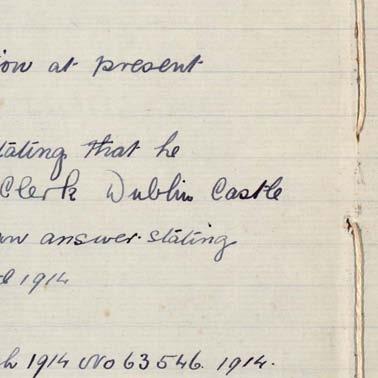 at present
stating that he
Clerk Dublin Castle
an answer stating
1914
1914 No 63546. 1914.